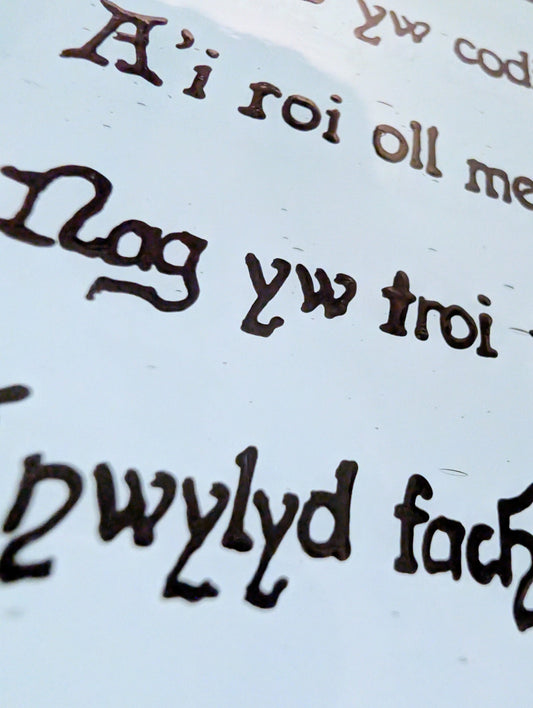 yw cod
A'i roi oll me
Nag yw troi
nwylyd fach